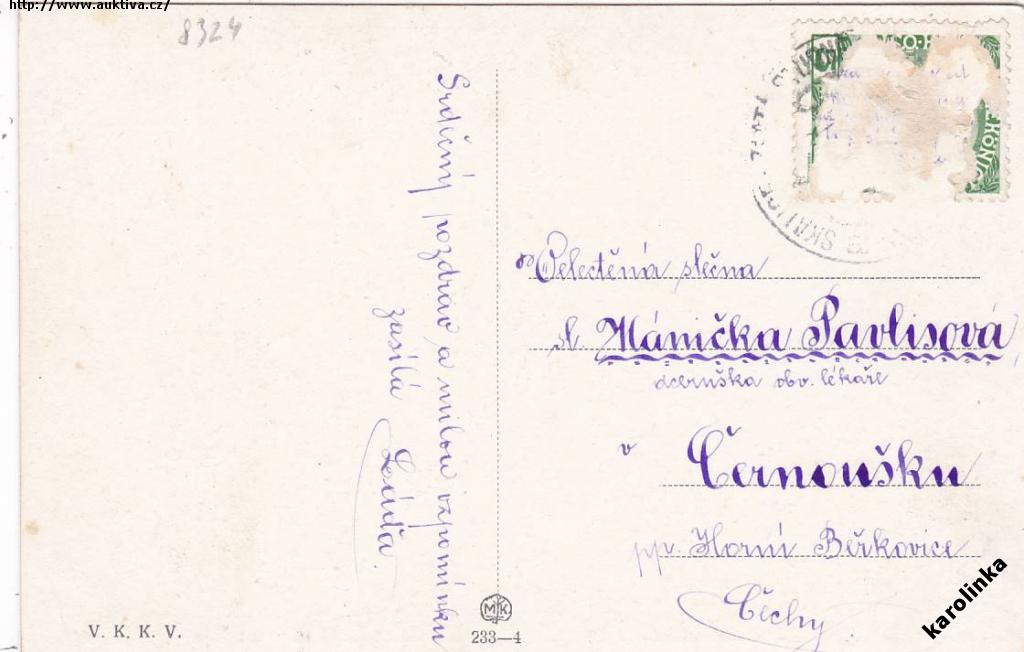 http://www.auktiva.cz/
8324
Srdečný pozdrav a milou vzpomínku
zasílá
Láďa.
Ctěná slečna
sl. Mánička Pavlisová
dceruška obv. lékaře
v Černoušku
pp. Horní Beřkovice
Čechy
V. K. K. V.
MK
233—4
karolinka